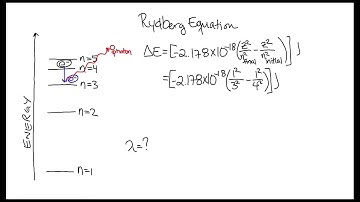 Rydberg Equation
ΔE=[-2.178x10⁻¹⁸(z²/n²final - z²/n²initial)]J
=[-2.178x10⁻¹⁸(1²/3² - 1²/4²)]J
photon
n=5
n=4
n=3
n=2
n=1
e⁻
e⁻
ENERGY
λ=?